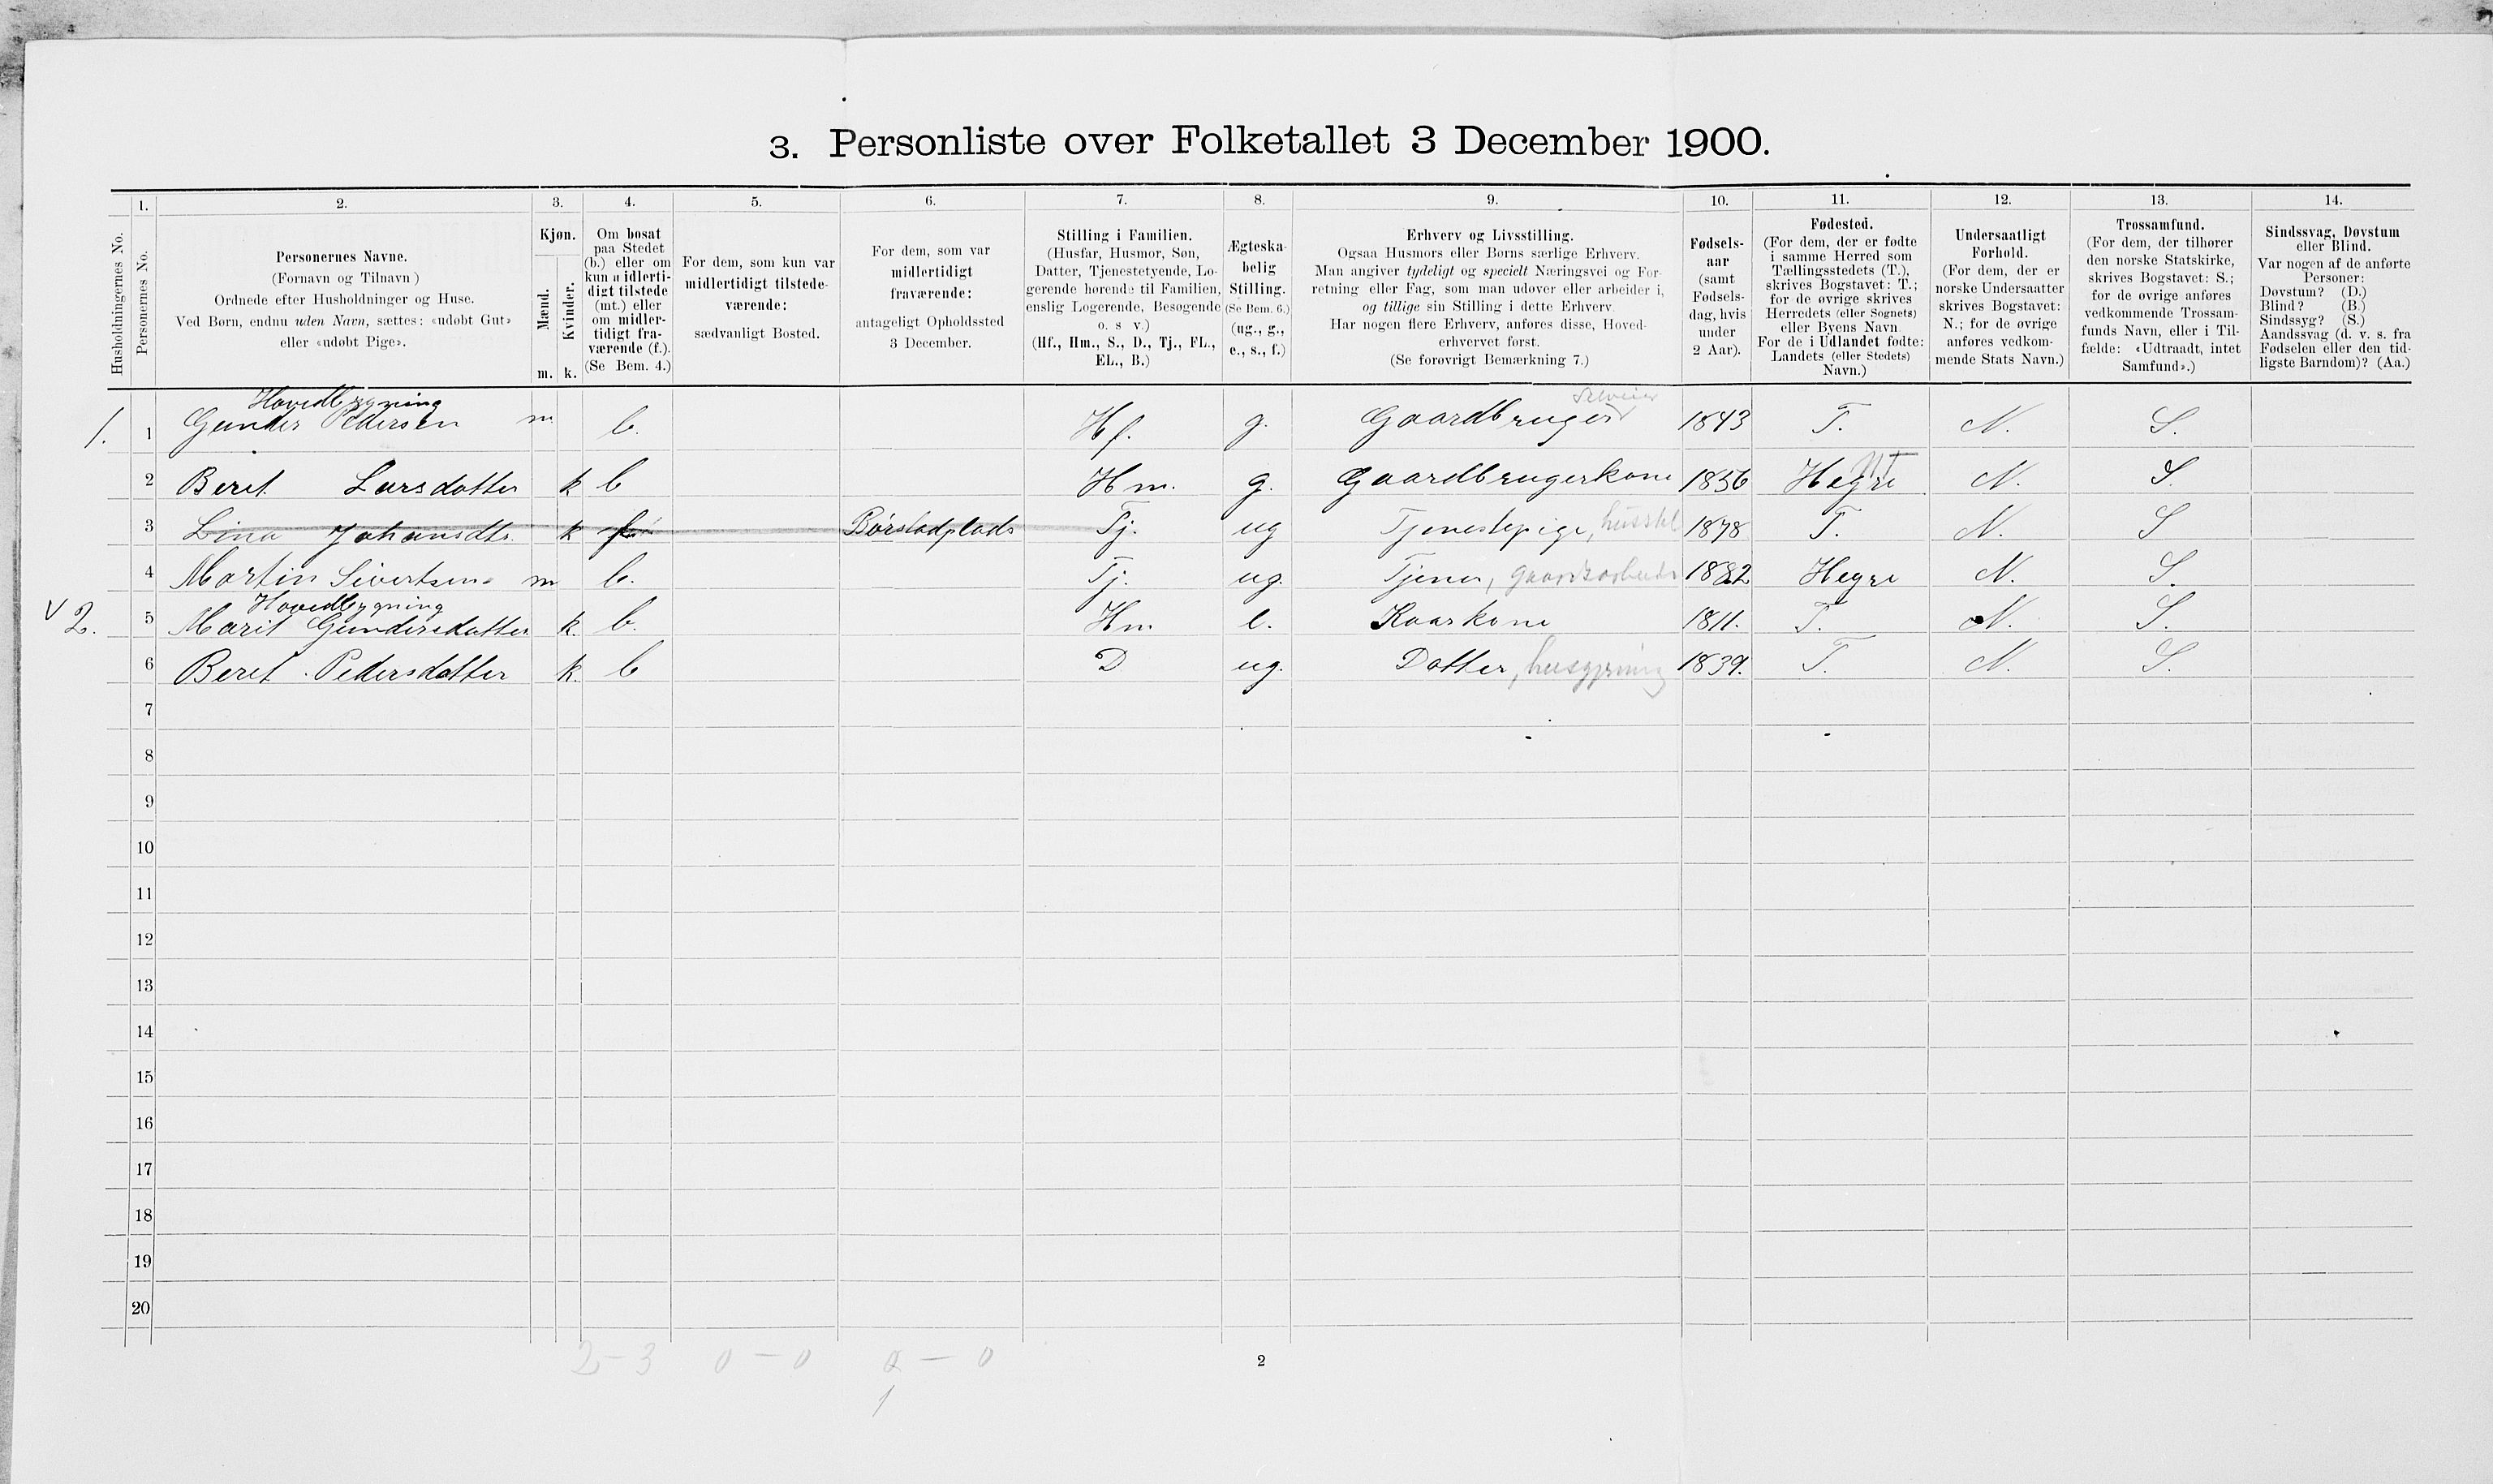 3. Personliste over Folketallet 3 December 1900.
Husholdningernes No.
1. Personernes No.
2. Personernes Navne.
(Fornavn og Tilnavn)
Ordnede efter Husholdninger og Huse.
Ved Børn, endnu uden Navn, sættes: «udøbt Gut»
eller «udøbt Pige».
3. Kjøn.
Mænd. m.
Kvinder. k.
4. Om bosat
paa Stedet
(b.) eller om
kun midlerti-
digt tilstede
(mt.) eller
om midler-
tidigt fra-
værende (f.).
(Se Bem. 4.)
5. For dem, som kun var
midlertidigt tilstede-
værende:
sædvanligt Bosted.
6. For dem, som var
midlertidigt
fraværende:
antageligt Opholdssted
3 December.
7. Stilling i Familien.
(Husfar, Husmor, Søn,
Datter, Tjenestetyende, Lo-
gerende hørende til Familien,
enslig Logerende, Besøgende
o. s v.)
(Hf., Hm., S., D., Tj., FL.,
EL., B.)
8. Ægteska-
belig
Stilling.
(Se Bem. 6.)
(ug., g.,
e., s., f.)
9. Erhverv og Livsstilling.
Ogsaa Husmors eller Børns særlige Erhverv.
Man angiver tydeligt og specielt Næringsvei og For-
retning eller Fag, som man udøver eller arbeider i,
og tillige sin Stilling i dette Erhverv.
Har nogen flere Erhverv, anføres disse, Hoved-
erhvervet først.
(Se forøvrigt Bemærkning 7.)
10. Fødsels-
aar
(samt
Fødsels-
dag, hvis
under
2 Aar).
11. Fødested.
(For dem, der er fødte
i samme Herred som
Tællingsstedets (T.),
skrives Bogstavet: T.;
for de øvrige skrives
Herredets (eller Sognets)
eller Byens Navn.
For de i Udlandet fødte:
Landets (eller Stedets)
Navn.)
12. Undersaatligt
Forhold.
(For dem, der er
norske Undersaatter
skrives Bogstavet:
N.; for de øvrige
anføres vedkom-
mende Stats Navn.)
13. Trossamfund.
(For dem, der tilhører
den norske Statskirke,
skrives Bogstavet: S.;
for de øvrige anføres
vedkommende Trossam-
funds Navn, eller i Til-
fælde: «Udtraadt, intet
Samfund».)
14. Sindssvag, Døvstum
eller Blind.
Var nogen af de anførte
Personer:
Døvstum? (D.)
Blind? (B.)
Sindssyg? (S.)
Aandssvag (d. v. s. fra
Fødselen eller den tid-
ligste Barndom)? (Aa.)
Hovedbygning Selveier
1. 1 Gunder Pedersen m b. Hf. g. Gaardbruger 1843 T. N. S.
2 Beret Larsdatter k b Hm. g. Gaardbrugerkone 1856 Hegre N. S.
3 Lina Johansdtr. k f Børstadplads Tj. ug Tjenestepige, husstel 1878 T. N. S
4 Martin Sivertsen m b. Tj. ug. Tjener, gaardsarbeide 1882 Hegre N. S.
Hovedbygning
v 2. 5 Marit Gundersdatter k. b. Hm e. Kaarkone 1811. T. N. S.
6 Beret Pedersdatter k. b D ug. Datter, husgjerning 1839. T. N. S.
7
8
9
10
11
12
13
14
15
16
17
18
19
20
2-3 0-0 - 0 2
1